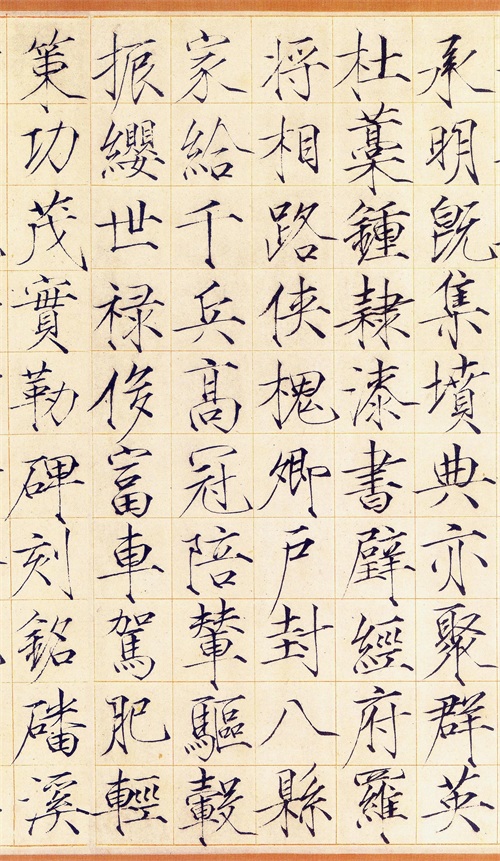 承明既集墳典亦聚群英
杜藁鍾隸漆書壁經府羅
将相路俠槐卿户封八縣
家給千兵髙冠陪輦驅轂
振纓世禄侈富車駕肥輕
策功茂實勒碑刻銘磻溪